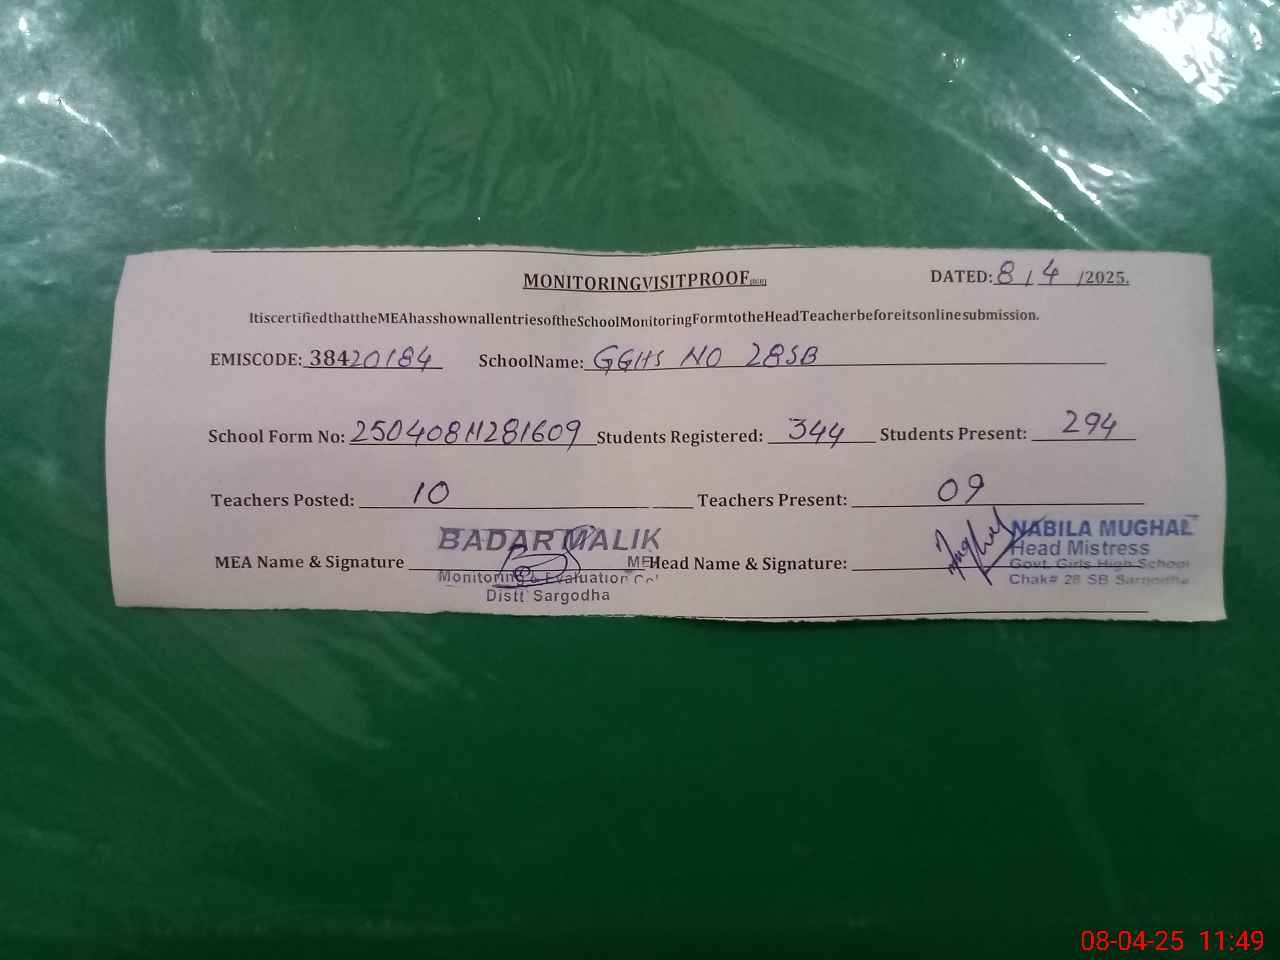 MONITORINGVISITPROOF
DATED: 8 / 4 /2025.
ItiscertifiedthattheMEAhasshownallentriesoftheSchoolMonitoringFormtotheHeadTeacherbeforeitsonlinesubmission.
EMISCODE: 38420184 SchoolName: GGHS NO 28SB
School Form No: 25040811281609 Students Registered: 344 Students Present: 294
Teachers Posted: 10 Teachers Present: 09
MEA Name & Signature BADAR MALIK Head Name & Signature: NABILA MUGHAL
Head Mistress
Monitoring & Evaluation Govt. Girls High School
Distt Sargodha Chak# 28 SB Sargodha
08-04-25 11:49